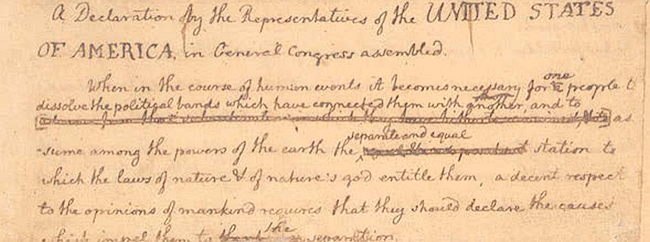 A Declaration by the Representatives of the UNITED STATES
OF AMERICA, in General Congress assembled.
one
When in the course of human events it becomes necessary for people t
dissolve the political bands which have connected them with another, and to
as
separate and equal
-sume among the powers of the earth the station to
which the laws of nature & of nature's god entitle them, a decent respect
to the opinions of mankind requires that they should declare the causes
the
which impel them to separation.